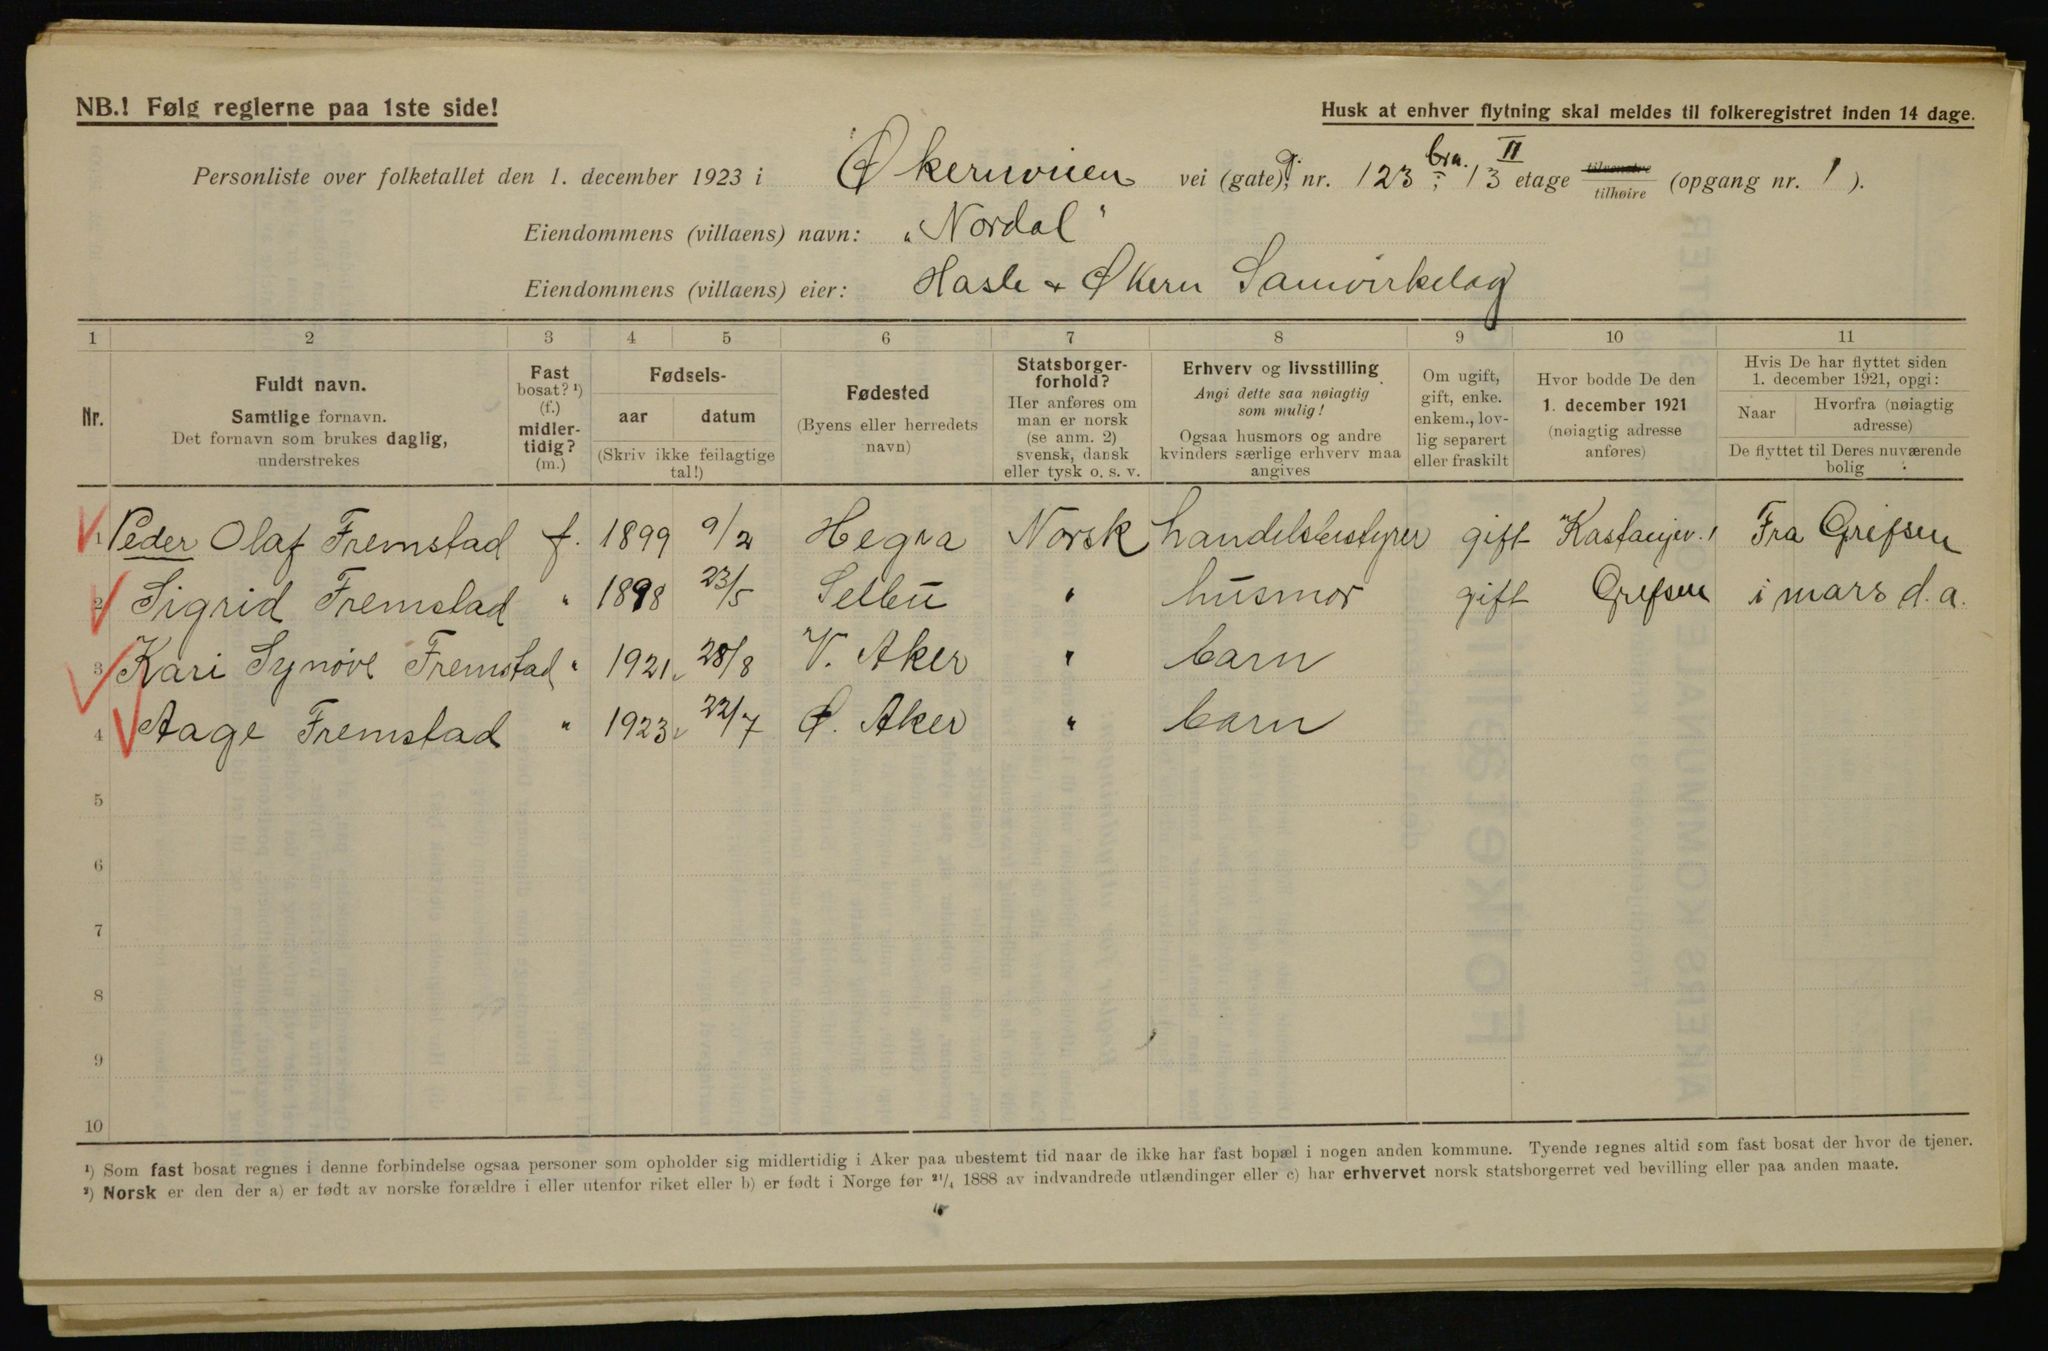 NB.! Følg reglerne paa 1ste side!
Husk at enhver flytning skal meldes til folkeregistret inden 14 dage.
Personliste over folketallet den 1. december 1923 i Økernveien vei (gate), g. nr. 123, brn. 13 II etage tilvenstre tilhøire (opgang nr. 1 ).
Eiendommens (villaens) navn: „Nordal"
Eiendommens (villaens) eier: Hasle & Økern Samvirkelag
1 2 3 4 5 6 7 8 9 10 11
Nr.
Fuldt navn.
Samtlige fornavn.
Det fornavn som brukes daglig,
understrekes
Fast
bosat? ¹)
(f.)
midler-
tidig?
(m.)
Fødsels-
aar datum
(Skriv ikke feilagtige
tal!)
Fødested
(Byens eller herredets
navn)
Statsborger-
forhold?
Her anføres om
man er norsk
(se anm. 2)
svensk, dansk
eller tysk o. s. v.
Erhverv og livsstilling
Angi dette saa nøiagtig
som mulig!
Ogsaa husmors og andre
kvinders særlige erhverv maa
angives
Om ugift,
gift, enke.
enkem., lov-
lig separert
eller fraskilt
Hvor bodde De den
1. december 1921
(nøiagtig adresse
anføres)
Hvis De har flyttet siden
1. december 1921, opgi:
Naar Hvorfra (nøiagtig
adresse)
De flyttet til Deres nuværende
bolig
1 Peder Olaf Fremstad f. 1899 9/2 Hegra Norsk handelsbestyrer gift Kastanjev. 1 Fra Grefsen
2 Sigrid Fremstad " 1898 23/5 Selbu " husmor gift Grefsen i mars d. a.
3 Kari Synøve Fremstad " 1921 28/8 V. Aker " barn
4 Aage Fremstad " 1923 22/7 Ø. Aker " barn
5
6
7
8
9
10
¹) Som fast bosat regnes i denne forbindelse ogsaa personer som opholder sig midlertidig i Aker paa ubestemt tid naar de ikke har fast bopæl i nogen anden kommune. Tyende regnes altid som fast bosat der hvor de tjener.
²) Norsk er den der a) er født av norske forældre i eller utenfor riket eller b) er født i Norge før 21/4 1888 av indvandrede utlændinger eller c) har erhvervet norsk statsborgerret ved bevilling eller paa anden maate.